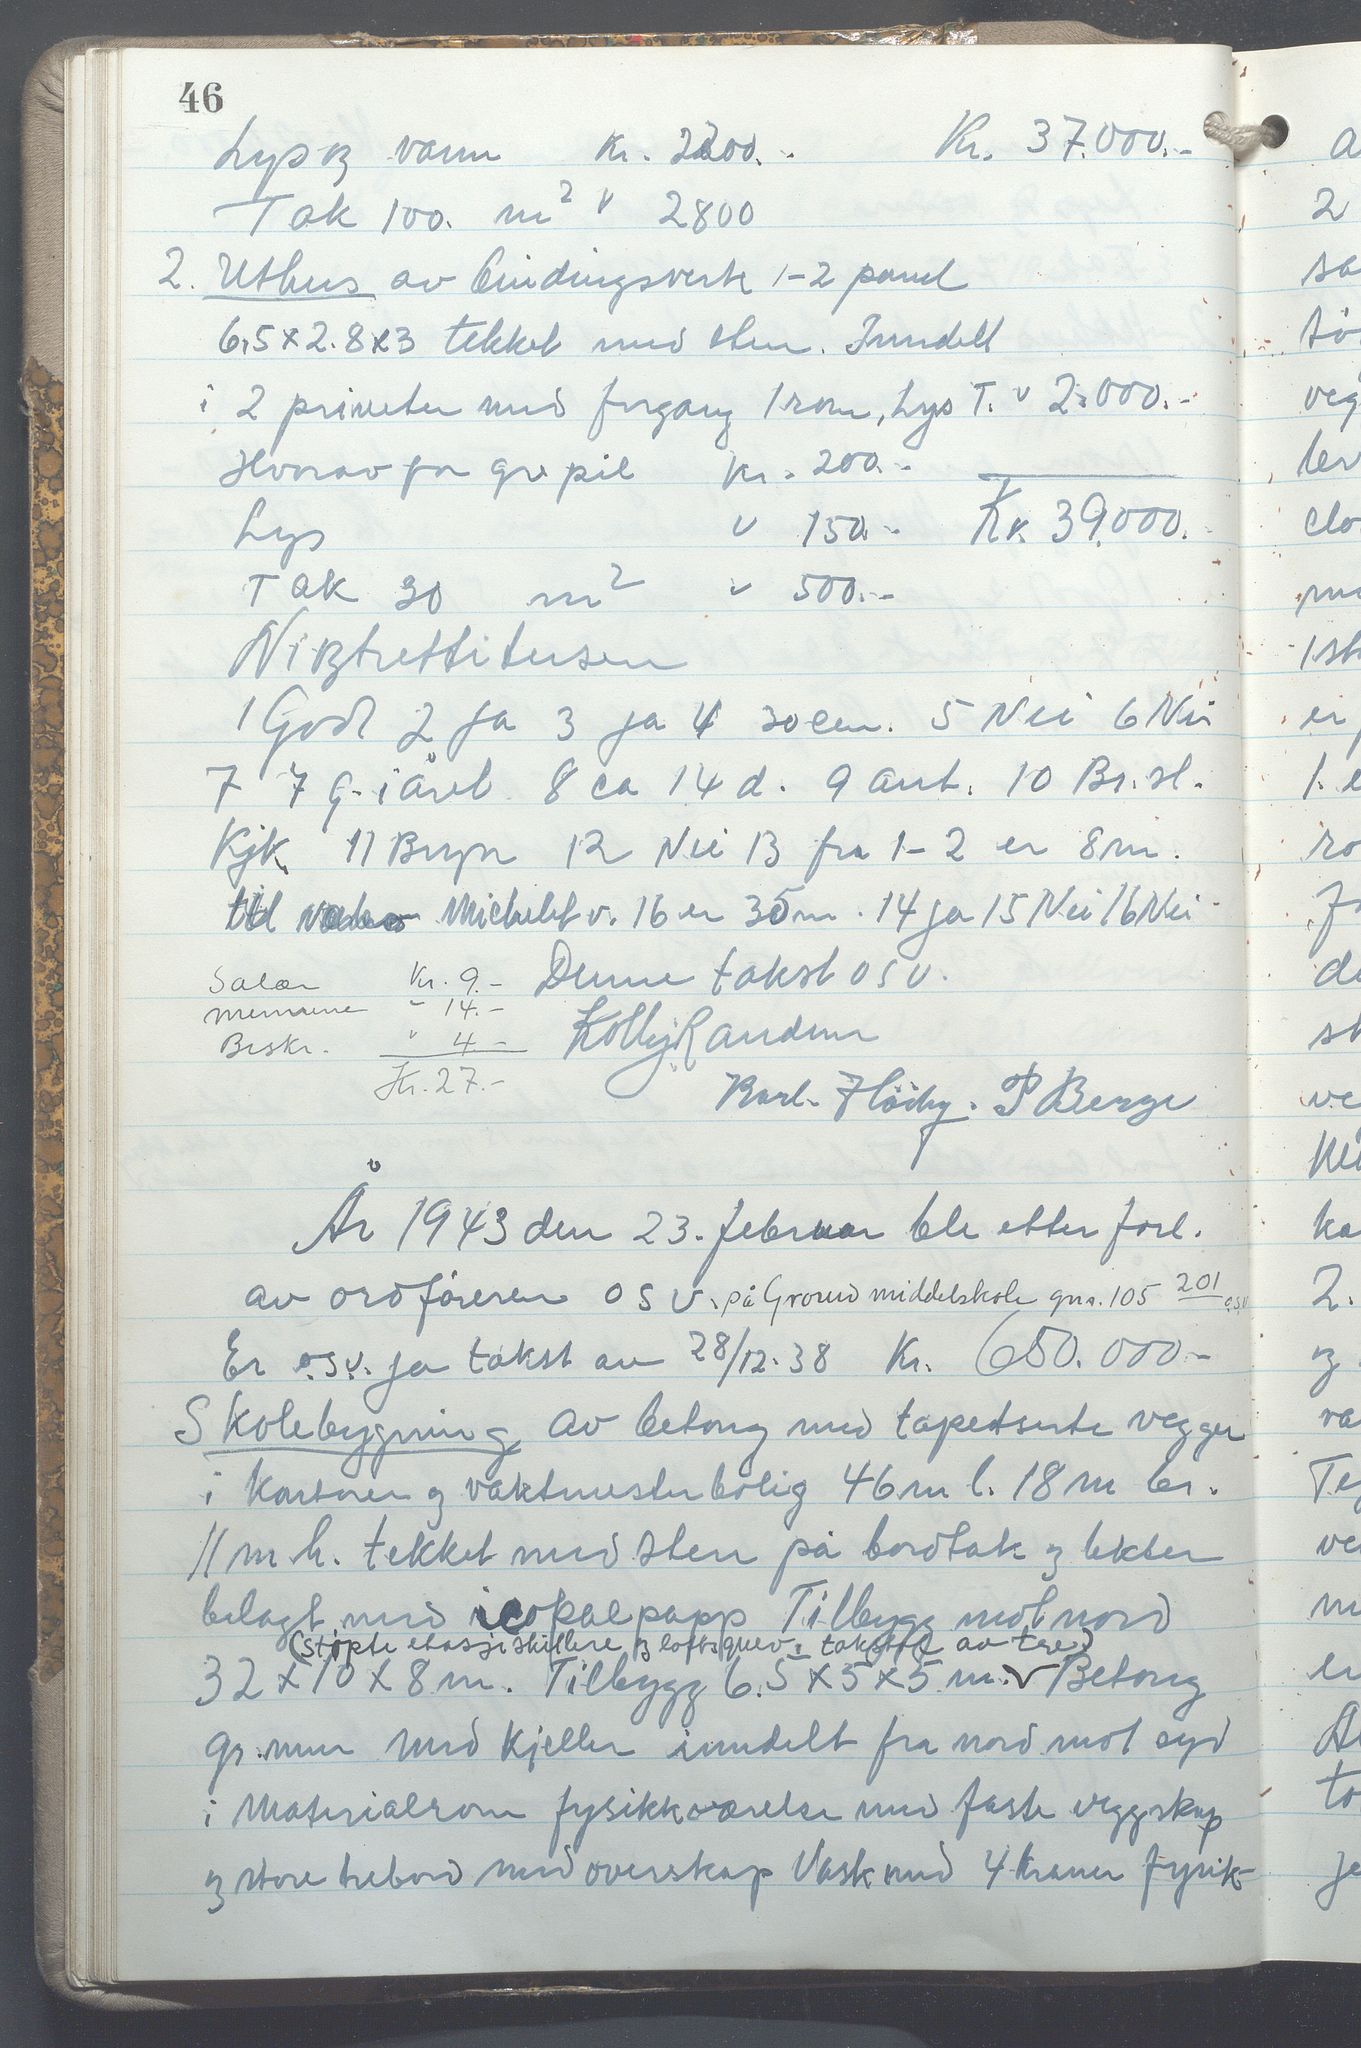 46
Lys og vann Kr. 2200.- Kr. 37.000.-
Tak 100. m² " 2800
2. Uthus av bindingsverk 1-2 panel
6,5 x 2.8 x 3 tekket med sten. Inndelt
i 2 priveter med forgang 1 rom, Lys T. " 2.000.-
Hvorav for gr. pil Kr. 200.-
Lys " 150.- Kr. 39.000.
Tak 30 m² " 500.-
Ni og tretti tusen
1 God 2 ja 3 ja 4 30 cm. 5 Nei 6 Nei
7 7 g. i året 8 ca 14 d. 9 ant. 10 Br. sl.
Kjk. 11 Bryn 12 Nei 13 fra 1-2 er 8 m.
til Michelet v. 16 er 35 m. 14 ja 15 Nei 16 Nei
Salær Kr. 9.- Denne takst osv.
" 14.-
Beskr. " 4- Kolbj Randem
Kr. 27.-
Karl. Flåby. P Berge
År 1943 den 23. februar ble etter forl.
av ordføreren osv. på Grorud middelskole gnr. 105 201 o.s.v
Er o.s.v. ja takst av 28/12.38 Kr. 650.000-
Skolebygning av betong med tapetserte vegger
i kontorer og vaktmesterbolig 46 m l. 18 m br.
11 m h. tekket med sten på bordtak og lekter
belagt med icopalpapp Tilbygg mot nord
(støpte etasjeskillere og takstol av tre)
32 x 10 x 8 m. Tilbygg 6.5 x 5 x 5 m. v Betong
gr. mur med kjeller inndelt fra nord mot syd
i Materialrom fysikkværelse med faste veggskap
og store trebord med overskap Vask med 4 kraner fysik-